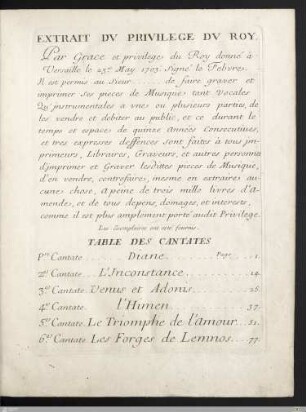 EXTRAIT DV PRIVILEGE DV ROY.
Par Grace et privilege du Roy donné à
Versaille le 25.e May 1703. Signé le Febvre.
Il est permis au Sieur ........ de faire graver et
imprimer Ses pieces de Musique; tant vocales
Qu'instrumentales a vnes ou plusieurs parties, de
les vendre et debiter au public, et ce durant le
temps et espace de quinze Années Consecutives,
et tres expresses deffences sont faites à tous im-
primeurs, Libraires, Graveurs, et autres personnes
d'imprimer et Graver lesdittes pieces de Musique,
d'en vendre, contrefaire, mesme en extraire au-
cune chose, a peine de trois mille livres d'a-
mende, et de tous depens, domages, et interests,
comme il est plus amplement porté audit Privilege.
Les Exemplaires ont esté fournis.
TABLE DES CANTATES
P.re Cantate ...... Diane ...... Page ... 1.
2.e Cantate ... L'Inconstance ... 14.
3.e Cantate. Venus et Adonis ... 26.
4.e Cantate ...... l'Himen ...... 37.
5.e Cantate. Le Triomphe de l'amour ... 51.
6.e Cantate. Les Forges de Lemnos ... 77.